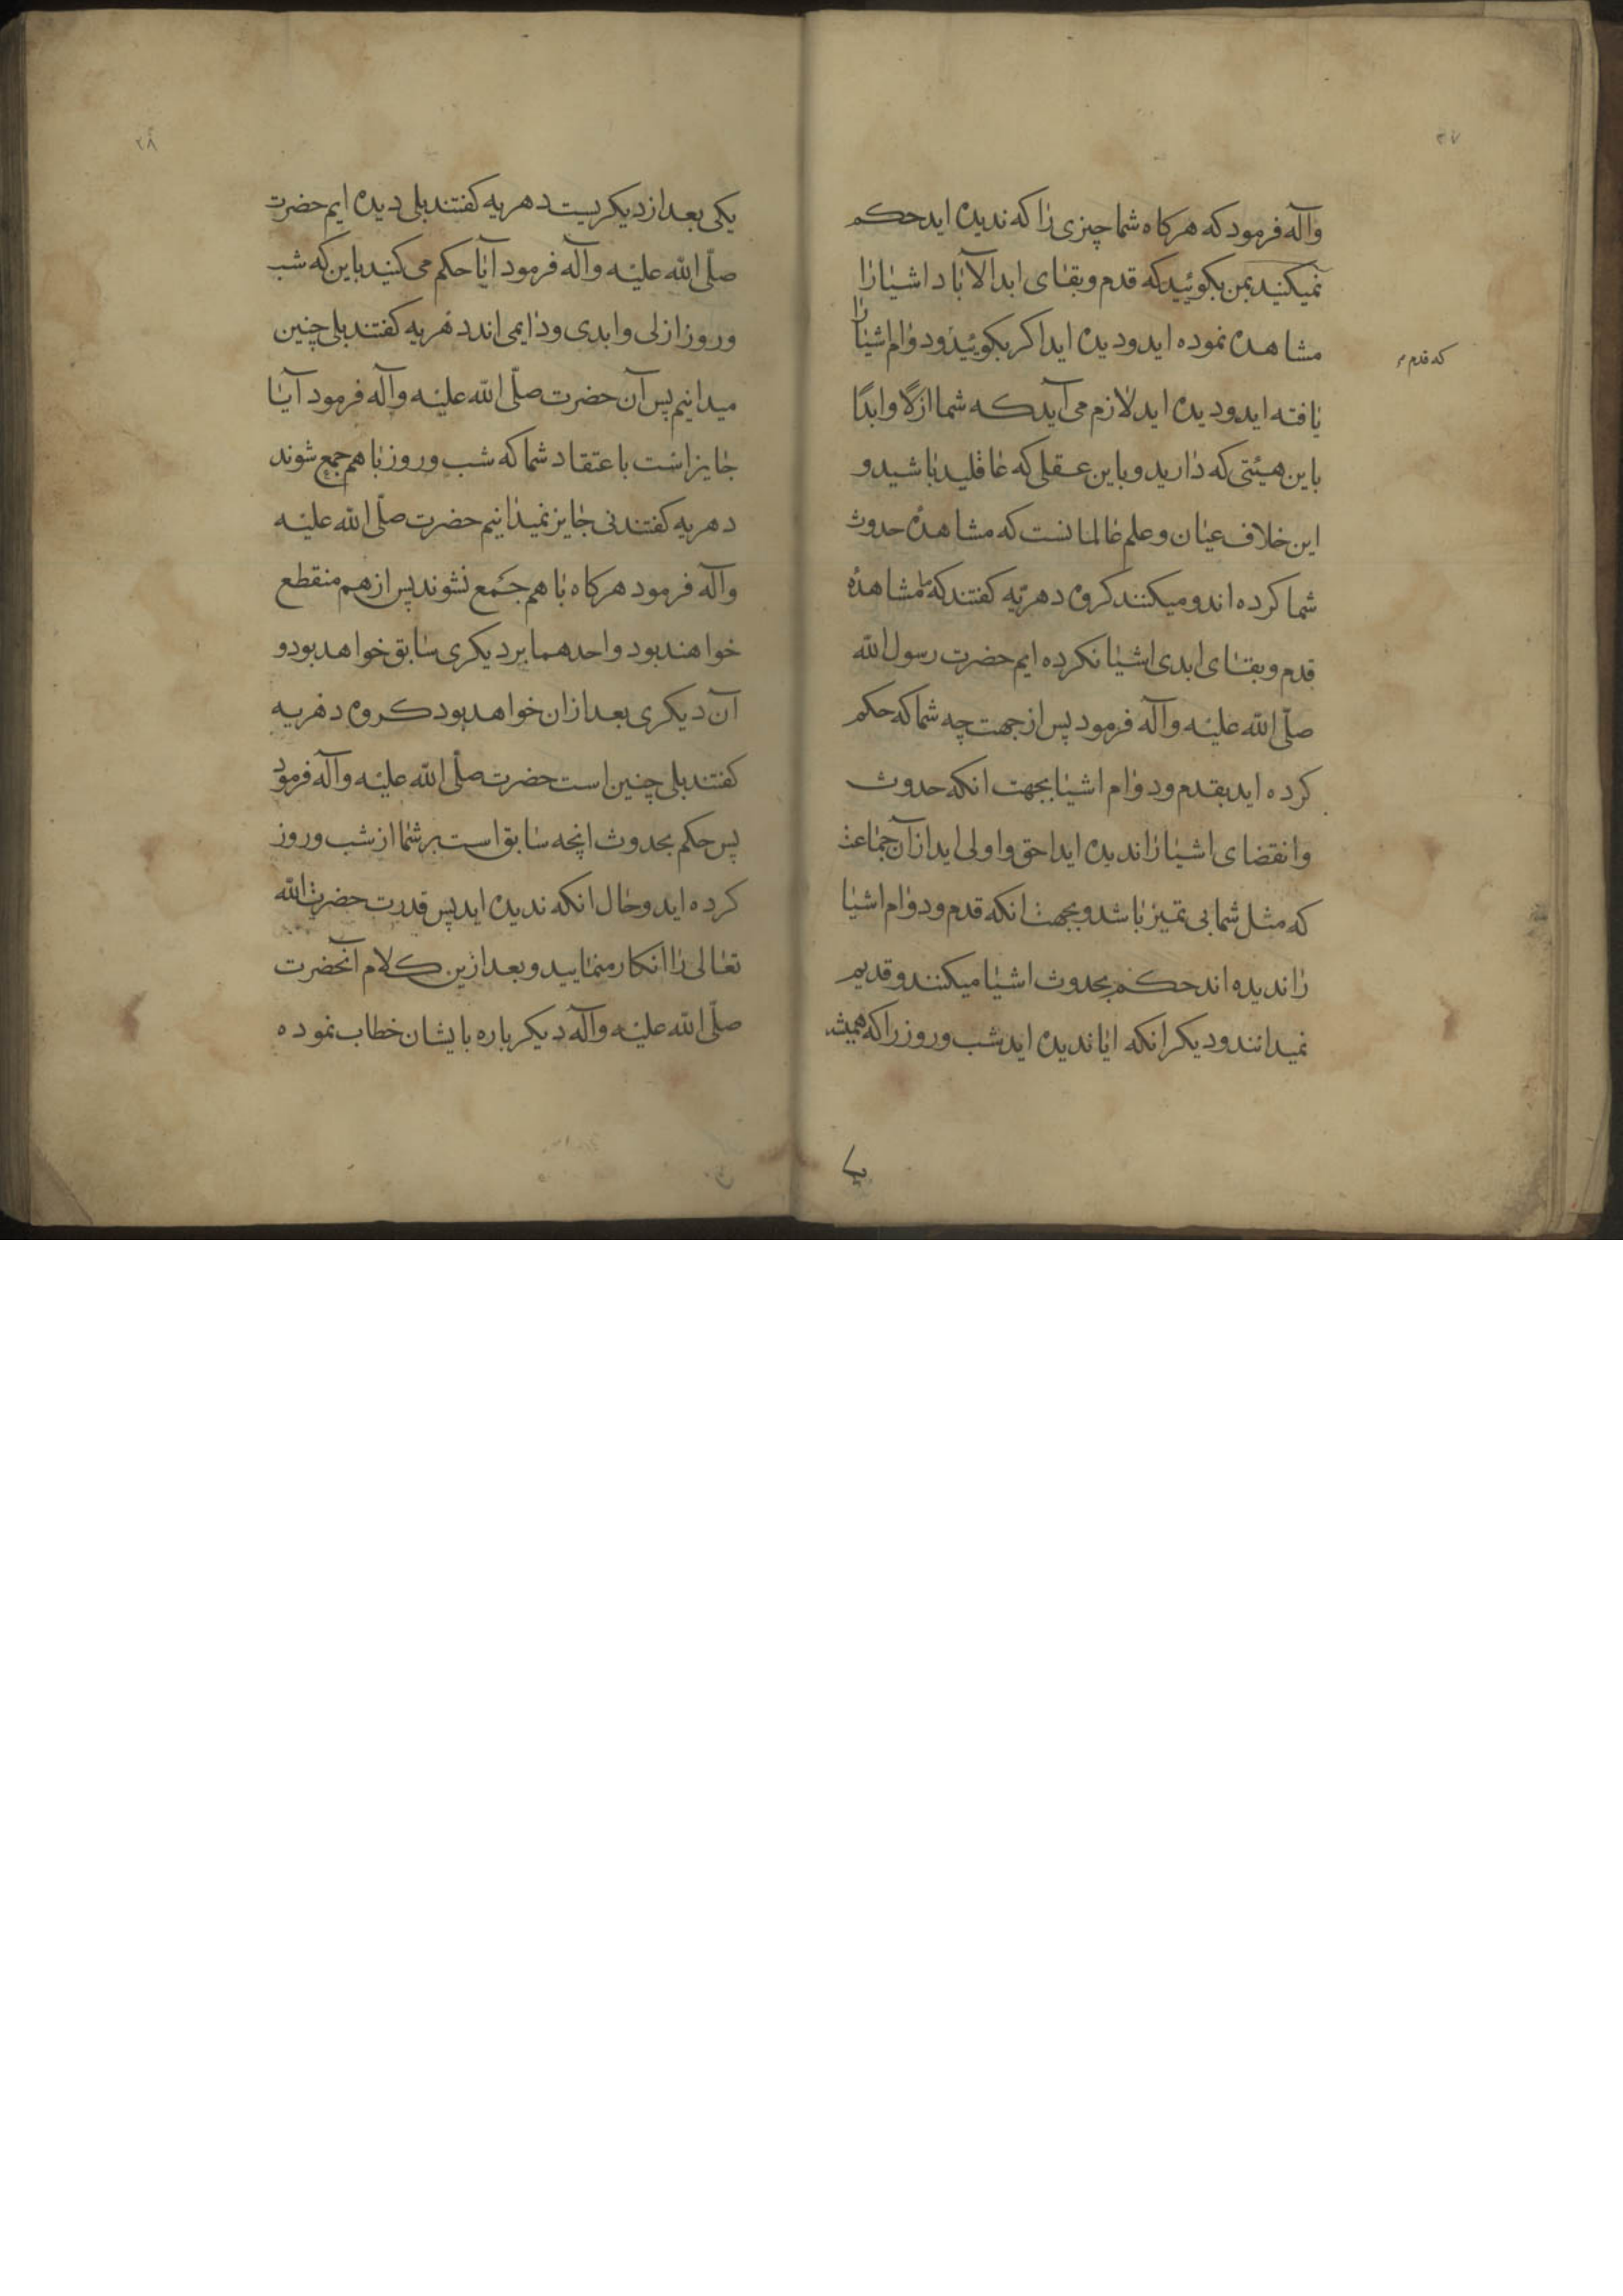 ۲۷
وآله فرمود که هرکاه شما چیزی را که ندیده اید حکم
نمیکنید بمن بکوئید که قدم و بقای ابد الآباد اشیا را
مشاهده نموده اید و دیده اید اکر بکوئید و دوام اشیا را
که قدم
یافته اید و دیده اید لازم می آید که شما ازلا و ابدًا
باین هیئتی که دارید و باین عقلی که عاقلید باشید و
این خلاف عیان و علم عالمانست که مشاهدهٔ حدوث
شما کرده اند و میکنند کروه دهریّه کفتند که ما مشاهدهٔ
قدم و بقای ابدی اشیا نکرده ایم حضرت رسول الله
صلّی الله علیه وآله فرمود پس از جهت چه شما که حکم
کرده اید بقدم و دوام اشیا بجهت انکه حدوث
وانقضای اشیا را ندیده اید احق و اولی اید از آن جماعت
که مثل شما بی تمیز باشد و بجهت انکه قدم و دوام اشیا
را ندیده اند حکم بحدوث اشیا میکنند و قدیم
نمیدانند و دیکر انکه ایا ندیده اید شب و روز را که همیشه
۲۸
یکی بعد از دیکریست دهریه کفتند بلی دیده ایم حضرت
صلّی الله علیه وآله فرمود آیا حکم می کنید باین که شب
و روز ازلی و ابدی و دایمی اند دهریه کفتند بلی چنین
میدانیم پس آن حضرت صلّی الله علیه وآله فرمود آیا
جایز است باعتقاد شما که شب و روز با هم جمع شوند
دهریه کفتند نی جایز نمیدانیم حضرت صلّی الله علیه
وآله فرمود هرکاه با هم جمع نشوند پس از هم منقطع
خواهند بود و احدهما بر دیکری سابق خواهد بود و
آن دیکری بعد از ان خواهد بود کروه دهریه
کفتند بلی چنین است حضرت صلّی الله علیه وآله فرمود
پس حکم بحدوث انچه سابق است بر شما از شب و روز
کرده اید و حال انکه ندیده اید پس قدرت حضرت الله
تعالی را انکار منمایید و بعد ازین کلام آنحضرت
صلّی الله علیه وآله دیکر باره بایشان خطاب نموده